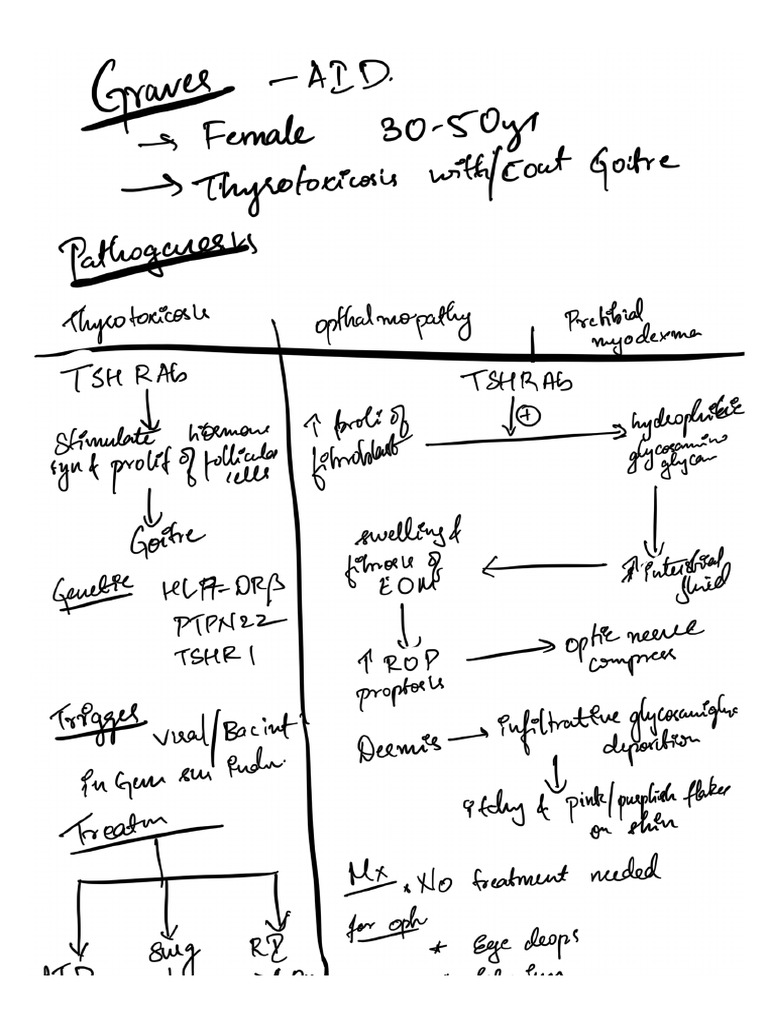 Graves - AID.
→ Female 30-50yr
→ Thyrotoxicosis with/cout Goitre
Pathogenesis
Thyrotoxicosis
TSH RAb
↓
Stimulate hormone
syn & prolif of follicular
cells
↓
Goitre
Genetic HLA-DRβ
PTPN22
TSHR1
Trigges Viral/Bac inf
Treatm
Surg
RI
opthalmopathy
Pretibial
myodexma
TSHRAb
↓ ⊕
↑ proli of
fibroblast → hydrophilic
glycosamino
glycan
↓
↑ interstitial
fluid
←
swelling &
fibrosis of
EOM
↓
↑ ROP → optic nerve
proptosis compress
Dermis → infiltrative glycosaminglyc
deposition
↓
itchy & pink/purplish flakes
on skin
Mx * No treatment needed
for oph
* Eye drops